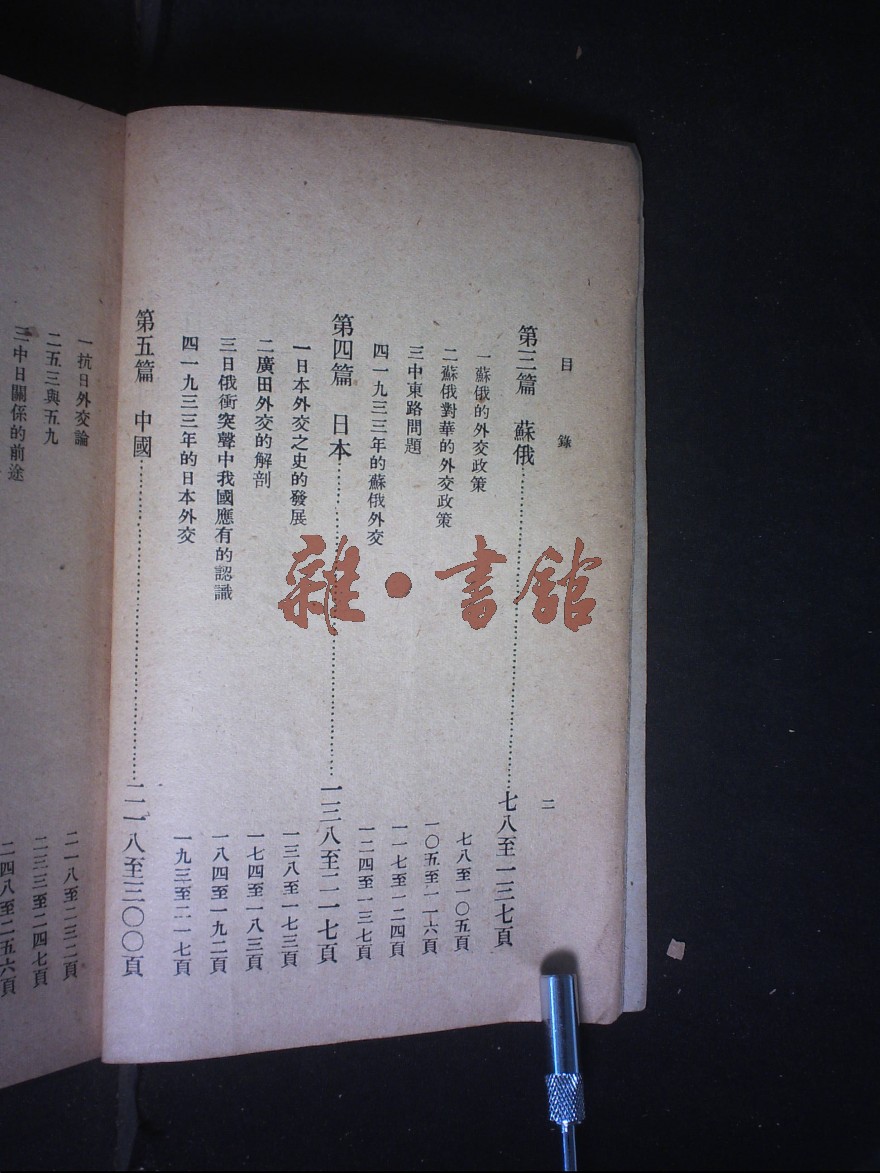 目錄
二
第三篇 蘇俄……七八至一三七頁
一蘇俄的外交政策 七八至一〇五頁
二蘇俄對華的外交政策 一〇五至一一六頁
三中東路問題 一一七至一二四頁
四一九三三年的蘇俄外交 一二四至一三七頁
第四篇 日本……一三八至二一七頁
一日本外交之史的發展 一三八至一七三頁
二廣田外交的解剖 一七四至一八三頁
三日俄衝突聲中我國應有的認識 一八四至一九二頁
四一九三三年的日本外交 一九三至二一七頁
第五篇 中國……二一八至三〇〇頁
一抗日外交論 二一八至二三二頁
二五三與五九 二三三至二四七頁
三中日關係的前途 二四八至二五六頁
雜·書館